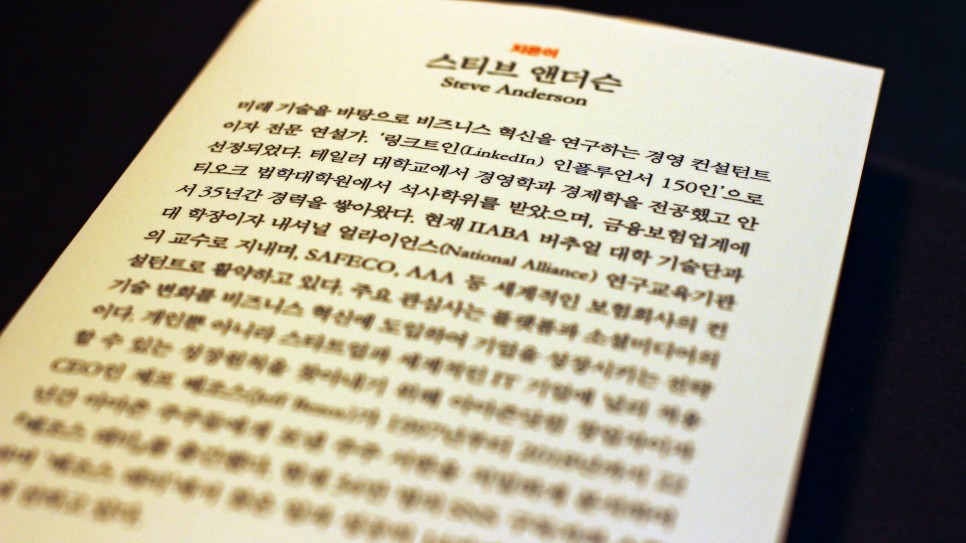 지은이
스티브 앤더슨
Steve Anderson
미래 기술을 바탕으로 비즈니스 혁신을 연구하는 경영 컨설턴트
이자 전문 연설가. ‘링크트인(LinkedIn) 인플루언서 150인’으로
선정되었다. 테일러 대학교에서 경영학과 경제학을 전공했고 안
티오크 법학대학원에서 석사학위를 받았으며, 금융보험업계에
서 35년간 경력을 쌓아왔다. 현재 IIABA 버추얼 대학 기술단과
대 학장이자 내셔널 얼라이언스(National Alliance) 연구교육기관
의 교수로 지내며, SAFECO, AAA 등 세계적인 보험회사의 컨
설턴트로 활약하고 있다. 주요 관심사는 플랫폼과 소셜미디어의
기술 변화를 비즈니스 혁신에 도입하여 기업을 성장시키는 전략
이다. 개인뿐 아니라 스타트업과 세계적인 IT 기업에 널리 적용
할 수 있는 성장원칙을 찾아내기 위해 아마존닷컴 창업자이자
CEO인 제프 베조스(Jeff Bezos)가 1997년부터 2018년까지